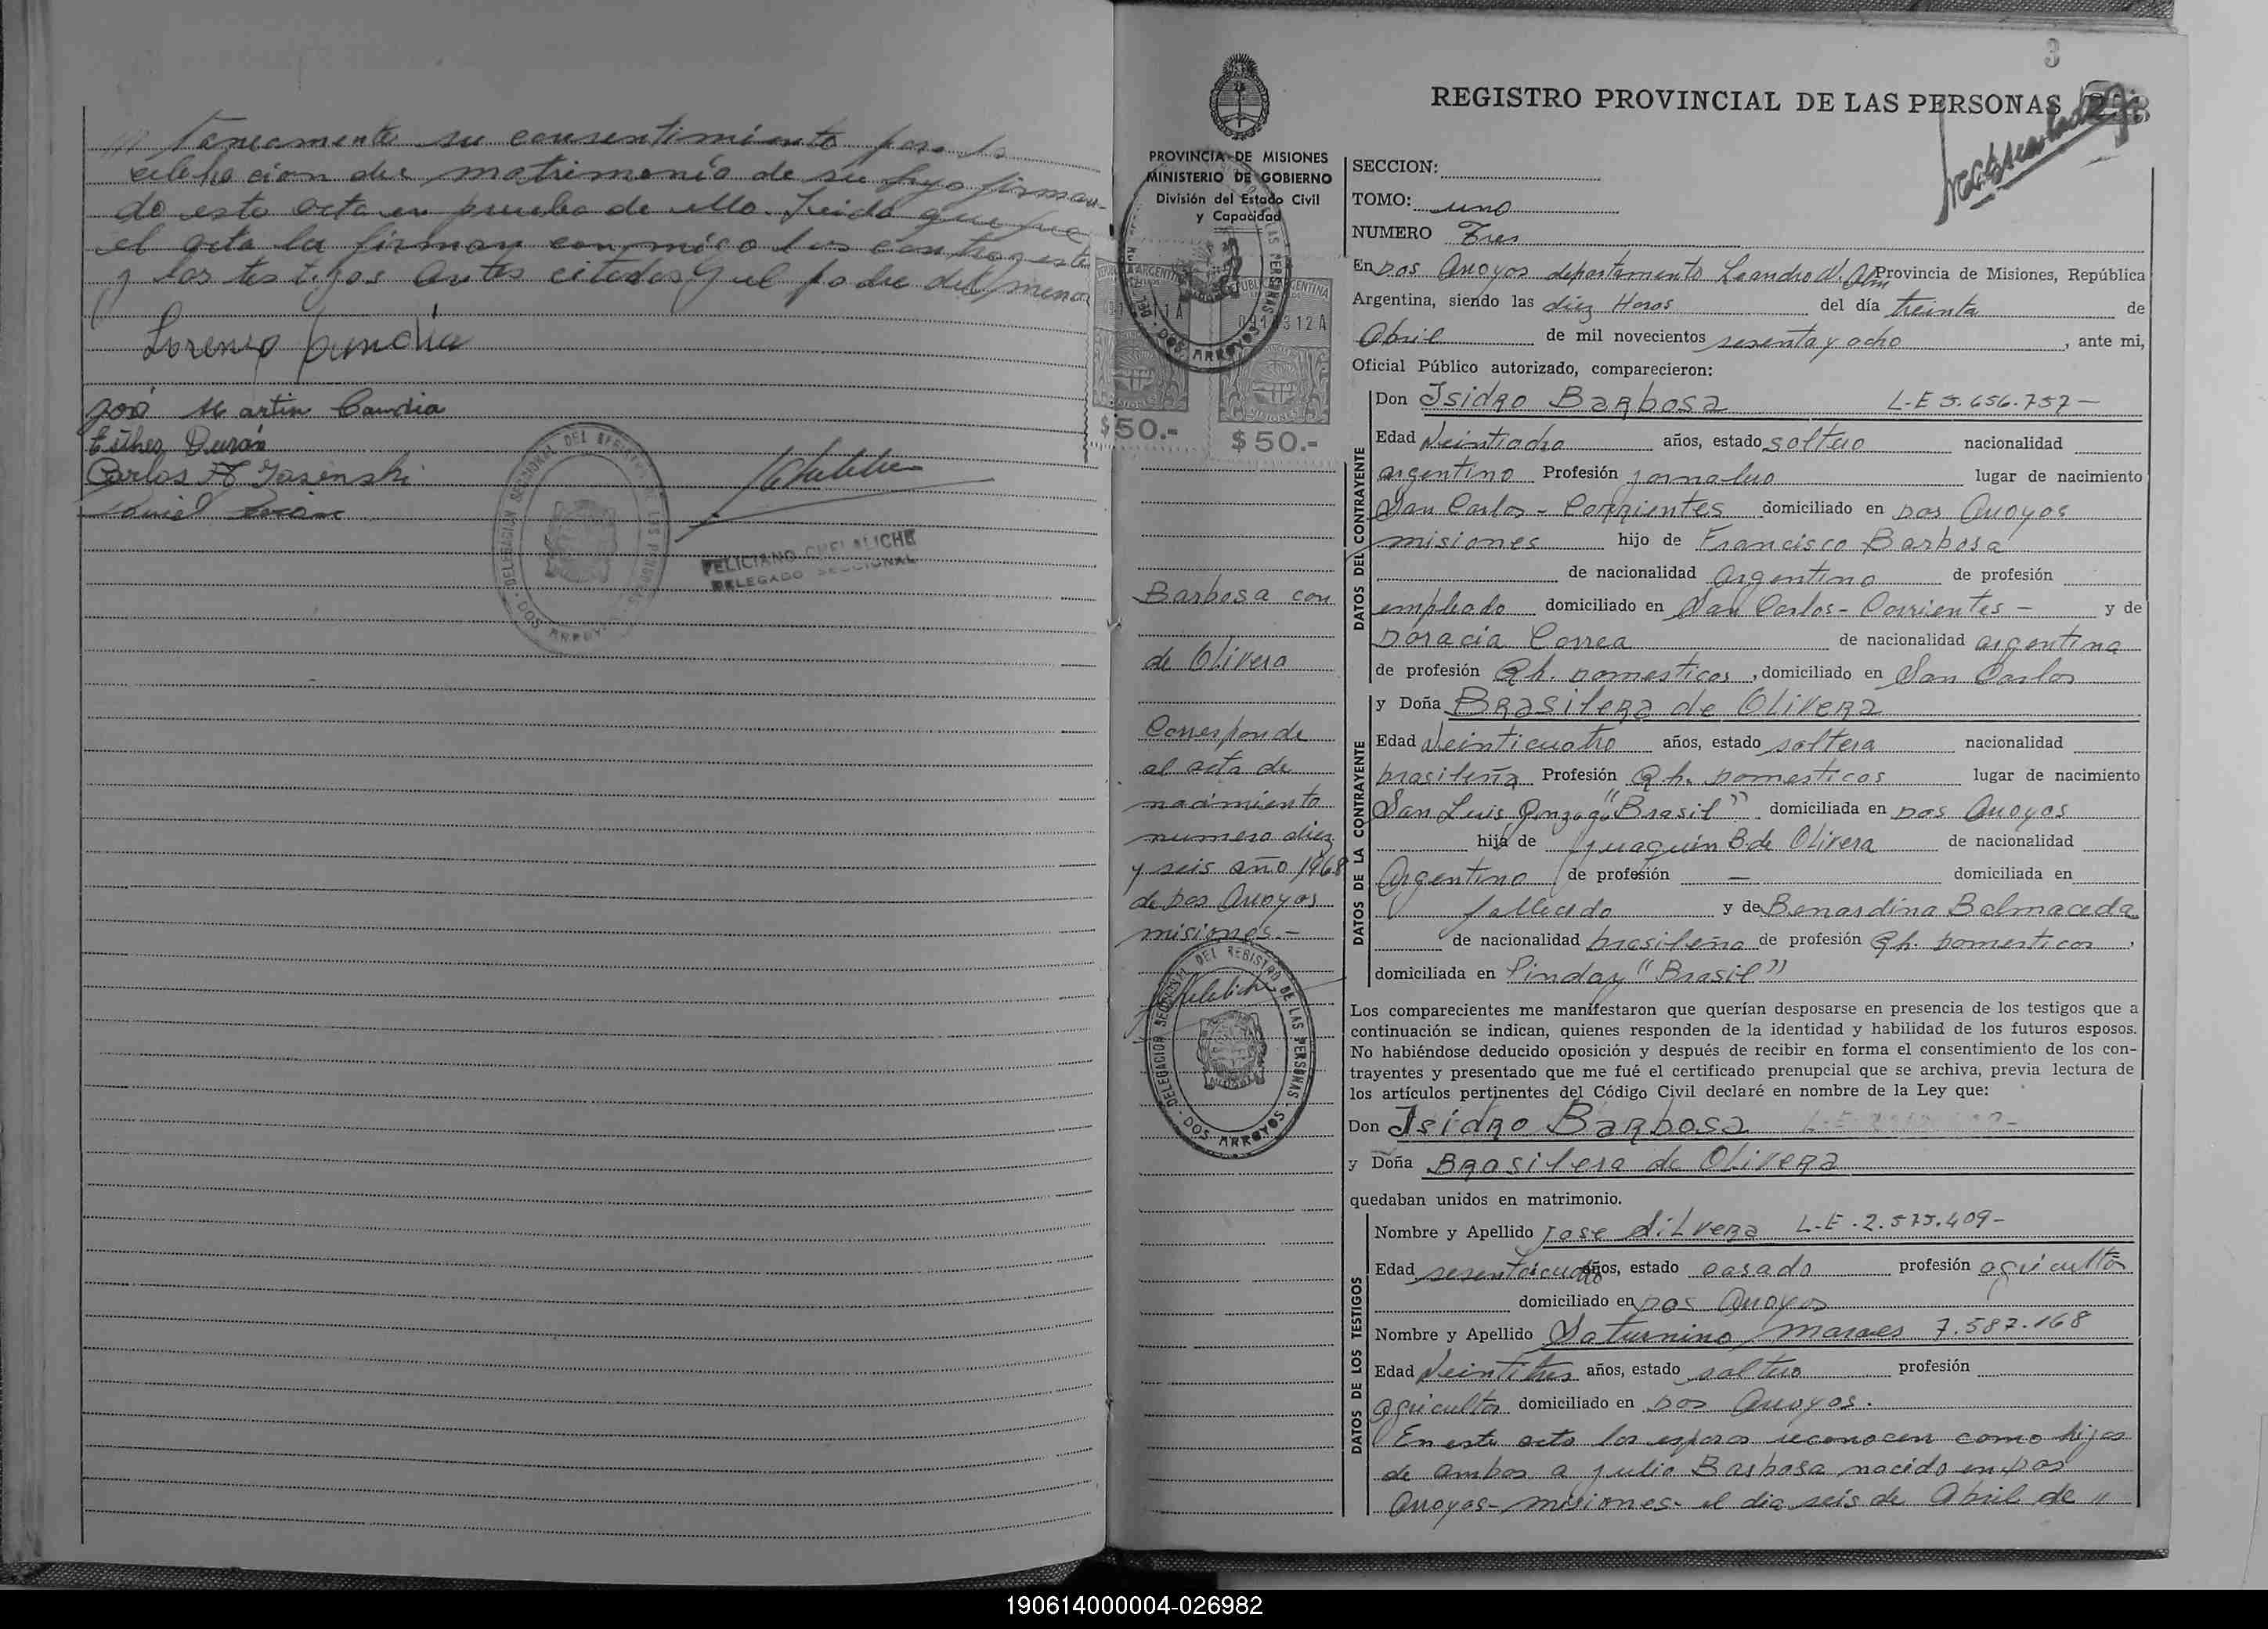 taneamente su consentimiento para la
celebracion del matrimonio de su hijo firman-
do esta acta en prueba de ello. Leida que fue
el acta la firman conmigo los contrayentes
y los testigos antes citados y el padre del menor
Lorenzo Candia
José Martin Candia
Esther Durán
Carlos A Jasenski
Daniel
DELEGACION SECCIONAL DEL REGISTRO DE LAS PERSONAS
DOS ARROYOS
FELICIANO CHELALICHE
DELEGADO SECCIONAL
3
REGISTRO PROVINCIAL DE LAS PERSONAS
PROVINCIA DE MISIONES
MINISTERIO DE GOBIERNO
División del Estado Civil
y Capacidad
DOS ARROYOS
REPUBLICA ARGENTINA
$50.-
$50.-
Barbosa con
de Olivera
Corresponde
al acta de
nacimiento
numero diez
y seis año 1968
de Dos Arroyos
misiones.-
DELEGACION SECCIONAL DEL REGISTRO DE LAS PERSONAS
DOS ARROYOS
SECCION:
TOMO: uno
NUMERO Tres
En Dos Arroyos departamento Leandro N. Alem Provincia de Misiones, República
Argentina, siendo las diez Horas del día treinta de
Abril de mil novecientos sesenta y ocho, ante mi,
Oficial Público autorizado, comparecieron:
DATOS DEL CONTRAYENTE
Don Isidro Barbosa L-E 5.656.757-
Edad Veintiocho años, estado soltero nacionalidad
argentino Profesión jornalero lugar de nacimiento
San Carlos - Corrientes domiciliado en Dos Arroyos
misiones hijo de Francisco Barbosa
de nacionalidad Argentino de profesión
empleado domiciliado en San Carlos - Corrientes - y de
Doracia Correa de nacionalidad argentina
de profesión Q.h. Domesticos, domiciliado en San Carlos
DATOS DE LA CONTRAYENTE
y Doña Brasilera de Olivera
Edad Veinticuatro años, estado soltera nacionalidad
brasileña Profesión Q.h. Domesticos lugar de nacimiento
San Luis Gonzaga "Brasil" domiciliada en Dos Arroyos
hija de Juaquin B. de Olivera de nacionalidad
Argentino de profesión — domiciliada en
fallecido y de Benardina Balmaceda
de nacionalidad brasileña de profesión Q.h. Domesticos,
domiciliada en Pinday "Brasil"
Los comparecientes me manifestaron que querían desposarse en presencia de los testigos que a
continuación se indican, quienes responden de la identidad y habilidad de los futuros esposos.
No habiéndose deducido oposición y después de recibir en forma el consentimiento de los con-
trayentes y presentado que me fué el certificado prenupcial que se archiva, previa lectura de
los artículos pertinentes del Código Civil declaré en nombre de la Ley que:
Don Isidro Barbosa
y Doña Brasilera de Olivera
quedaban unidos en matrimonio.
DATOS DE LOS TESTIGOS
Nombre y Apellido Jose Silvera L-E. 2.575.409-
Edad sesentaicuatro años, estado casado profesión agricultor
domiciliado en Dos Arroyos
Nombre y Apellido Saturnino Moraes 7.587.168
Edad Veintitres años, estado soltero profesión
agricultor domiciliado en Dos Arroyos.
En este acto los esposos reconocen como hijos
de ambos a Julio Barbosa nacido en Dos
Arroyos - misiones - el dia seis de Abril de "
190614000004-026982